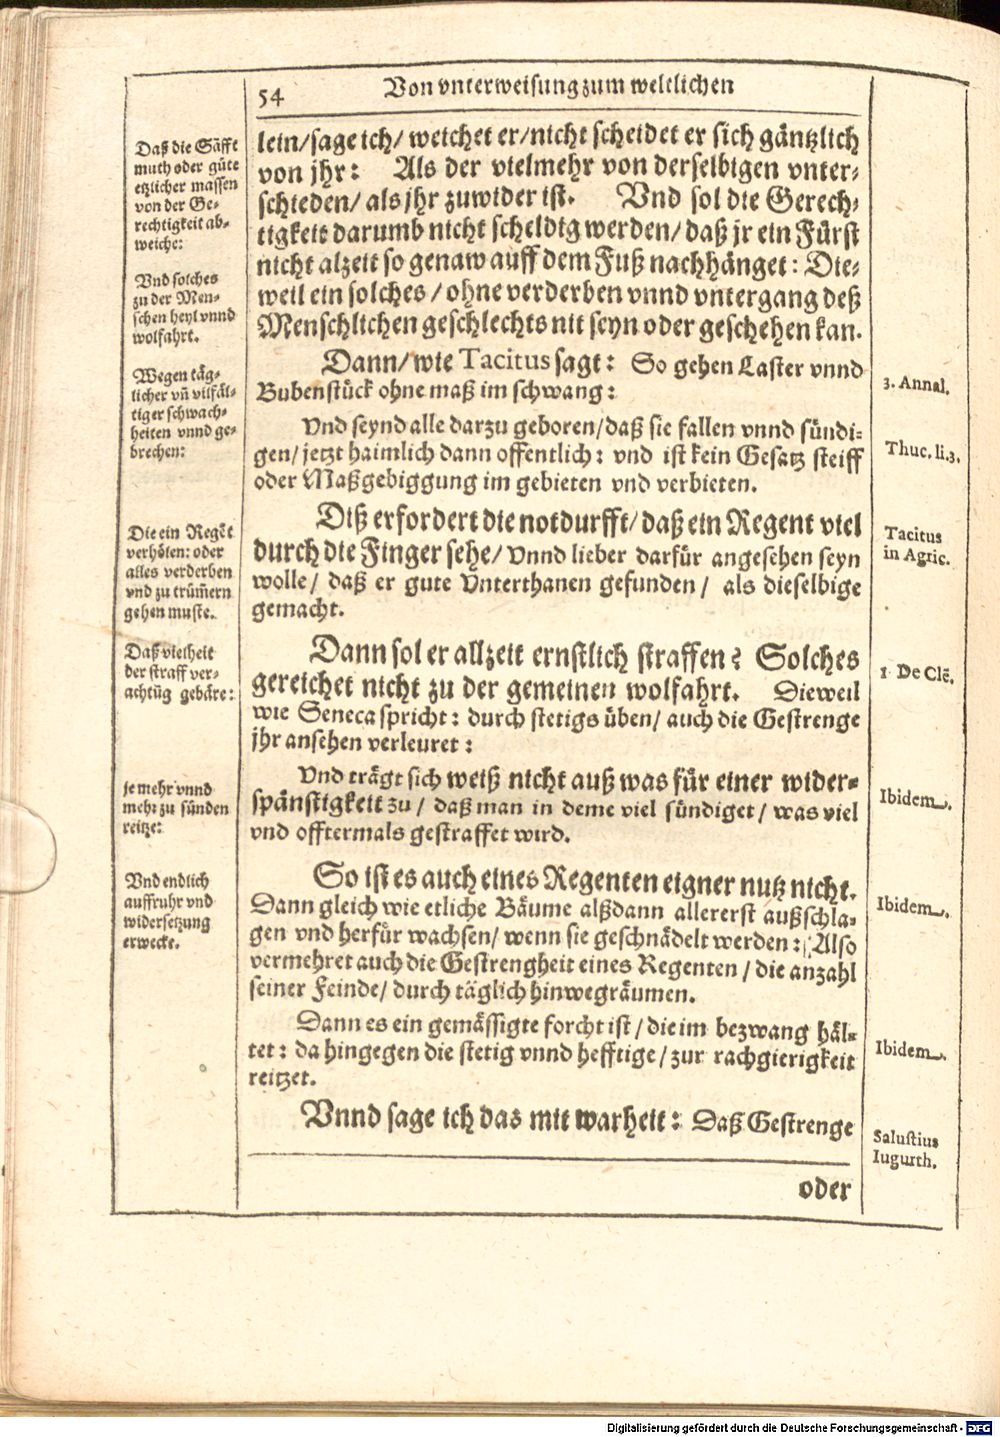 54
Von vnterweisung zum weltlichen
lein/sage ich/ weichet er/nicht scheidet er sich gäntzlich
von jhr: Als der vielmehr von derselbigen vnter-
schieden/ als jhr zuwider ist. Vnd sol die Gerech-
tigkeit darumb nicht scheldig werden/ daß jr ein Fürst
nicht alzeit so genaw auff dem Fuß nachhänget: Die-
weil ein solches / ohne verderben vnnd vntergang deß
Menschlichen geschlechts nit seyn oder geschehen kan.
Dann/ wie Tacitus sagt: So gehen Laster vnnd
Bubenstück ohne maß im schwang:
Vnd seynd alle darzu geboren/daß sie fallen vnnd sündi-
gen/ jetzt haimlich dann offentlich: vnd ist kein Gesatz steiff
oder Maßgebiggung im gebieten vnd verbieten.
Diß erfordert die notdurfft/ daß ein Regent viel
durch die Finger sehe/ Vnnd lieber darfür angesehen seyn
wolle/ daß er gute Vnterthanen gefunden/ als dieselbige
gemacht.
Dann sol er allzeit ernstlich straffen? Solches
gereichet nicht zu der gemeinen wolfahrt. Dieweil
wie Seneca spricht: durch stetigs üben/ auch die Gestrenge
jhr ansehen verleuret:
Vnd trägt sich weiß nicht auß was für einer wider-
spänstigkeit zu / daß man in deme viel sündiget / was viel
vnd offtermals gestraffet wird.
So ist es auch eines Regenten eigner nutz nicht.
Dann gleich wie etliche Bäume alßdann allererst außschla-
gen vnd herfür wachsen/ wenn sie geschnädelt werden: Also
vermehret auch die Gestrengheit eines Regenten / die anzahl
seiner Feinde/ durch täglich hinwegräumen.
Dann es ein gemässigte forcht ist / die im bezwang häl-
tet: da hingegen die stetig vnnd hefftige / zur rachgierigkeit
reitzet.
Vnnd sage ich das mit warheit: Daß Gestrenge
oder
Daß die Säfft
muth oder güte
etzlicher massen
von der Ge-
rechtigkeit ab-
weiche:
Vnd solches
zu der Men-
schen heyl vnnd
wolfahrt.
Wegen täg-
licher vñ vilfäl-
tiger schwach-
heiten vnnd ge-
brechen:
Die ein Regẽt
verhöten: oder
alles verderben
vnd zu trüm̃ern
gehen muste.
Daß vielheit
der straff ver-
achtũg gebäre:
je mehr vnnd
mehr zu sünden
reitze:
Vnd endlich
auffruhr vnd
widersetzung
erwecke.
3. Annal.
Thuc. li.3.
Tacitus
in Agric.
1 De Clẽ.
Ibidem.
Ibidem.
Ibidem.
Salustius
Iugurth.
Digitalisierung gefördert durch die Deutsche Forschungsgemeinschaft - DFG